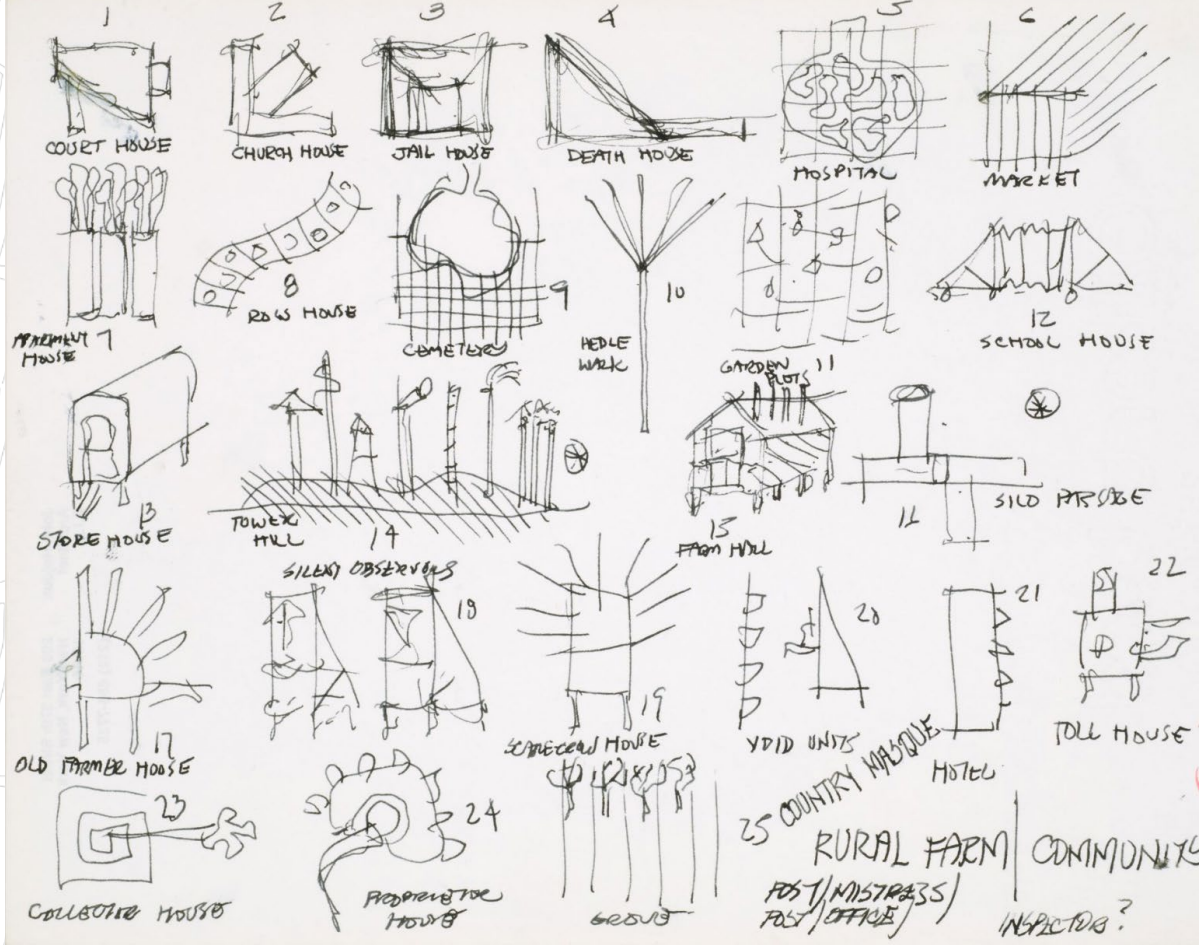 1 2 3 4 5 6
COURT HOUSE
CHURCH HOUSE
JAIL HOUSE
DEATH HOUSE
HOSPITAL
MARKET
APARTMENT 7
HOUSE
8
ROW HOUSE
9
CEMETERY
10
HEDGE
WALK
GARDEN 11
PLOTS
12
SCHOOL HOUSE
13
STORE HOUSE
TOWER
HILL
14
15
FARM HALL
SILO PASSAGE
17
OLD FARMER HOUSE
SILENT OBSERVERS
18
19
SCARECROW HOUSE
20
VOID UNITS
21
HOTEL
22
TOLL HOUSE
23
COLLECTOR HOUSE
24
PROPRIETOR
HOUSE
25
GROVE
COUNTRY MASQUE
RURAL FARM COMMUNITY
POST/MISTRESS/
POST/OFFICE/
INSPECTOR?